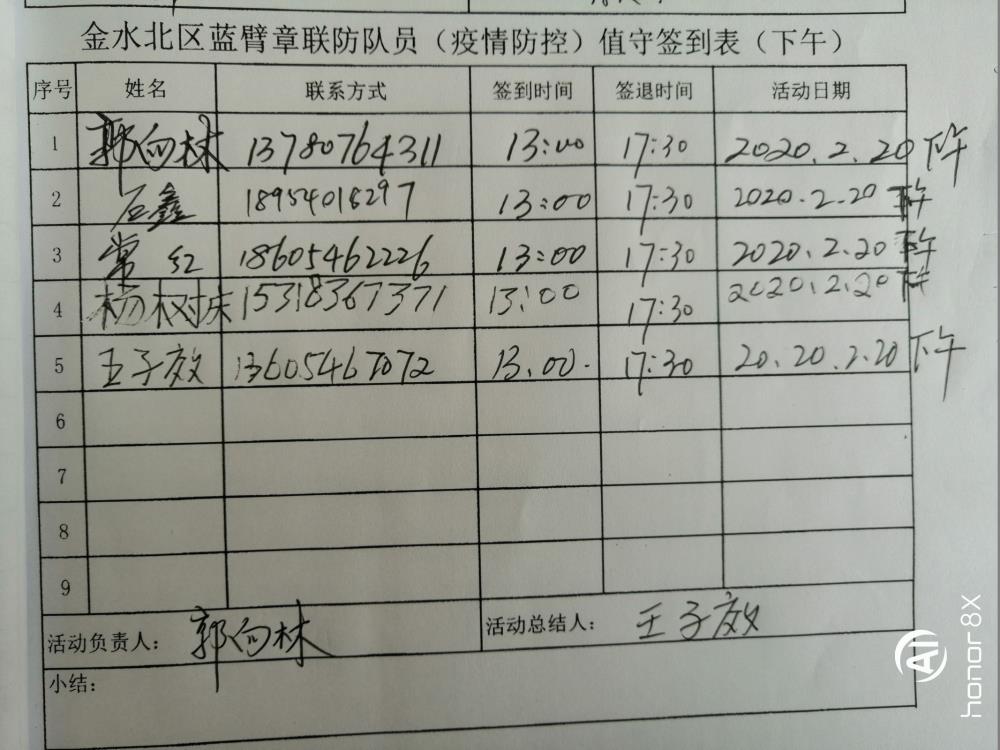 金水北区蓝臂章联防队员（疫情防控）值守签到表（下午）
序号 姓名 联系方式 签到时间 签退时间 活动日期
1 郭向林 13780764311 13:00 17:30 2020.2.20 下午
2 石鑫 18954018297 13:00 17:30 2020.2.20 下午
3 常红 18605462226 13:00 17:30 2020.2.20 下午
4 杨树床 15318367371 13:00 17:30 2020.2.20 下午
5 王子效 13605467072 13.00. 17:30 20.20.2.20 下午
6
7
8
9
活动负责人： 郭向林 活动总结人： 王子效
小结：
AI honor 8X